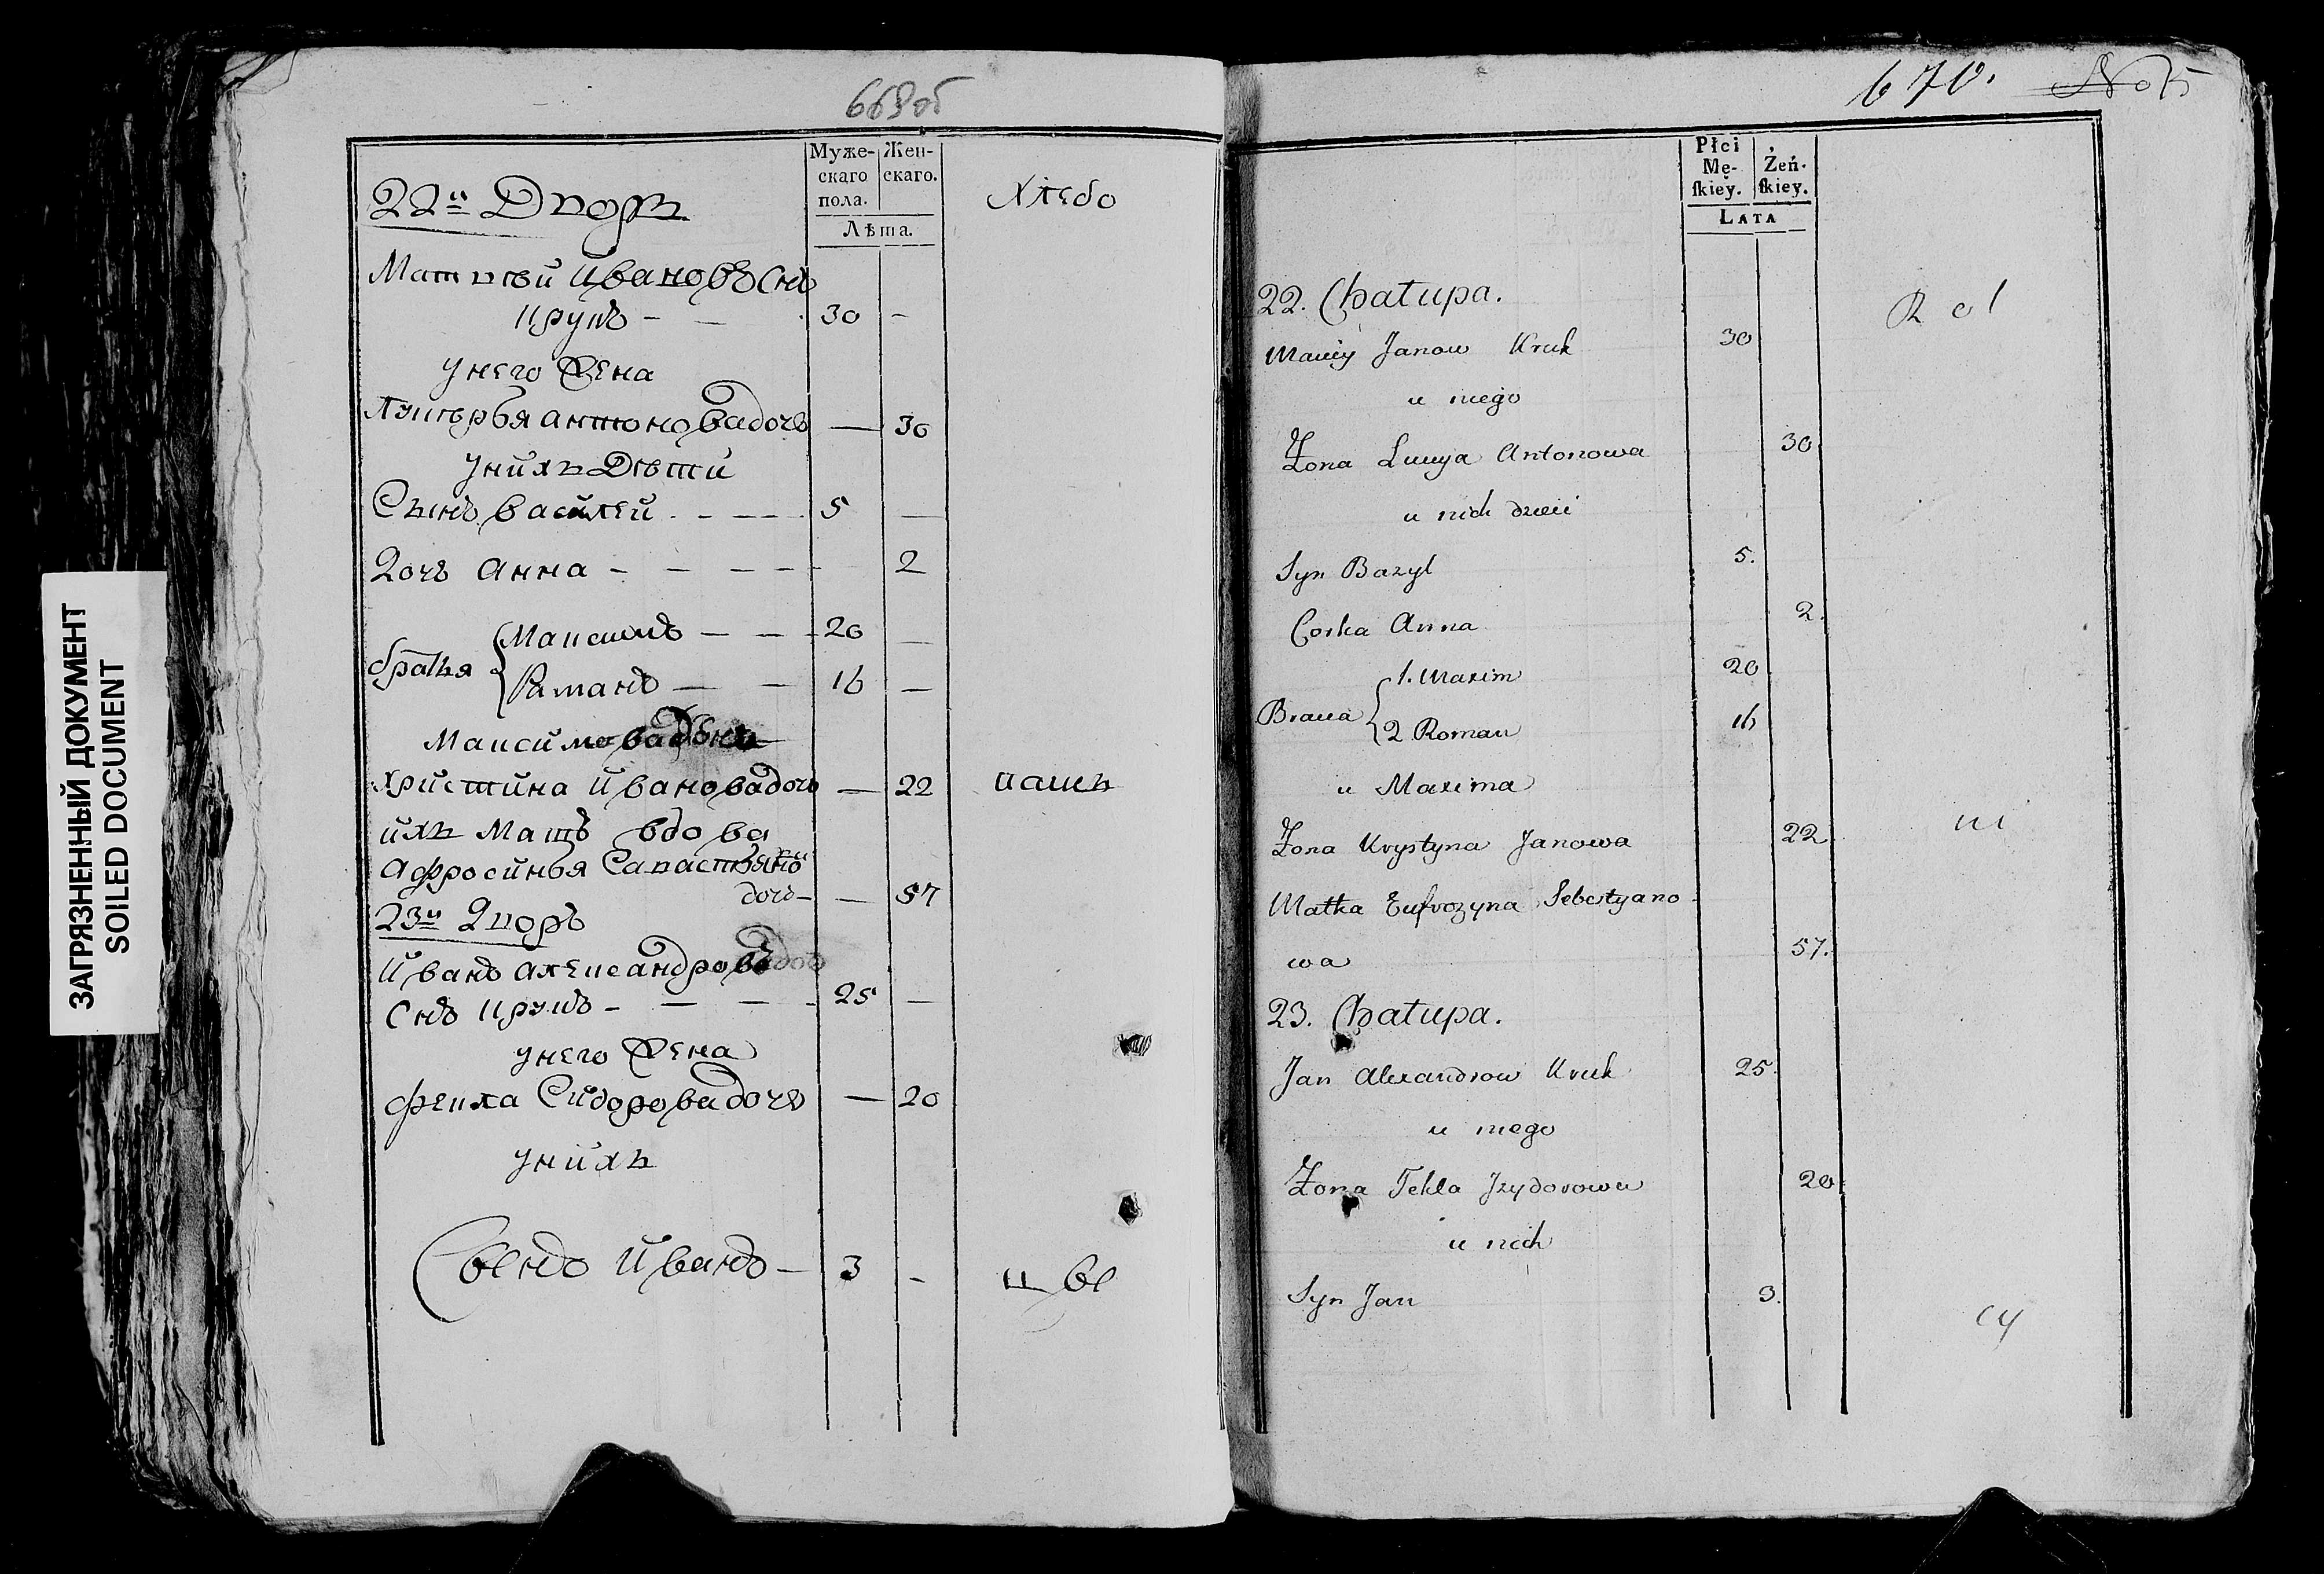 ЗАГРЯЗНЕННЫЙ ДОКУМЕНТ
SOILED DOCUMENT
669об
Муже-
скаго
пола.
Жен-
скаго.
Лѣта.
22й Дворъ
Хлебо
Матвѣй Ивановъ Снъ
Крукъ - - 30 -
унего Жена
Лукѣрья Антонова дочь — 30
унихъ Дѣти
Сынъ Василей - - - 5 —
Дочь Анна - - - - 2
братья
Максимъ - - - 20 —
Раманъ - - 16 —
Максимова Жена
Христина Иванова дочь — 22
пашц
ихъ Мать вдова
Афросинья Сапастьяно
дочь - — 57
23й Дворъ
Иванъ Александровъ
Снъ Крукъ - - - - 25 —
унего Жена
Фекла Сидорова дочь — 20
унихъ
Сынъ Иванъ - 3 -
670. No 5
Płci
Mę-
ſkiey.
Żeń-
ſkiey.
LATA
22. Chałupa.
Rol
Maciey Janow Kruk 30
u niego
Żona Lucya Antonowa 30
u nich dzieci
Syn Bazyl 5.
Corka Anna 2.
1. Maxim 20
Bracia
2 Roman 16
u Maxima
Żona Krystyna Janowa 22
ni
Matka Eufrozyna Sebestyano
wa 57.
23. Chałupa.
Jan Alexandrow Kruk 25.
u niego
Żona Tekla Jzydorowa 20
u nich
Syn Jan 3.
cy